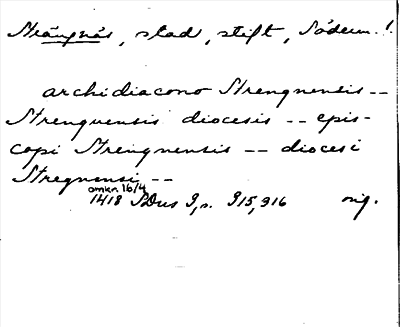 Strängnäs, stad, stift, Söderm. l.
archidiacono Strengnensis --
Strenguensis diocesis -- epis-
copi Strengnensis -- diocesi
Stregnensi --
omkr 16/4
1418 SDns I, s. 915, 916 orig.